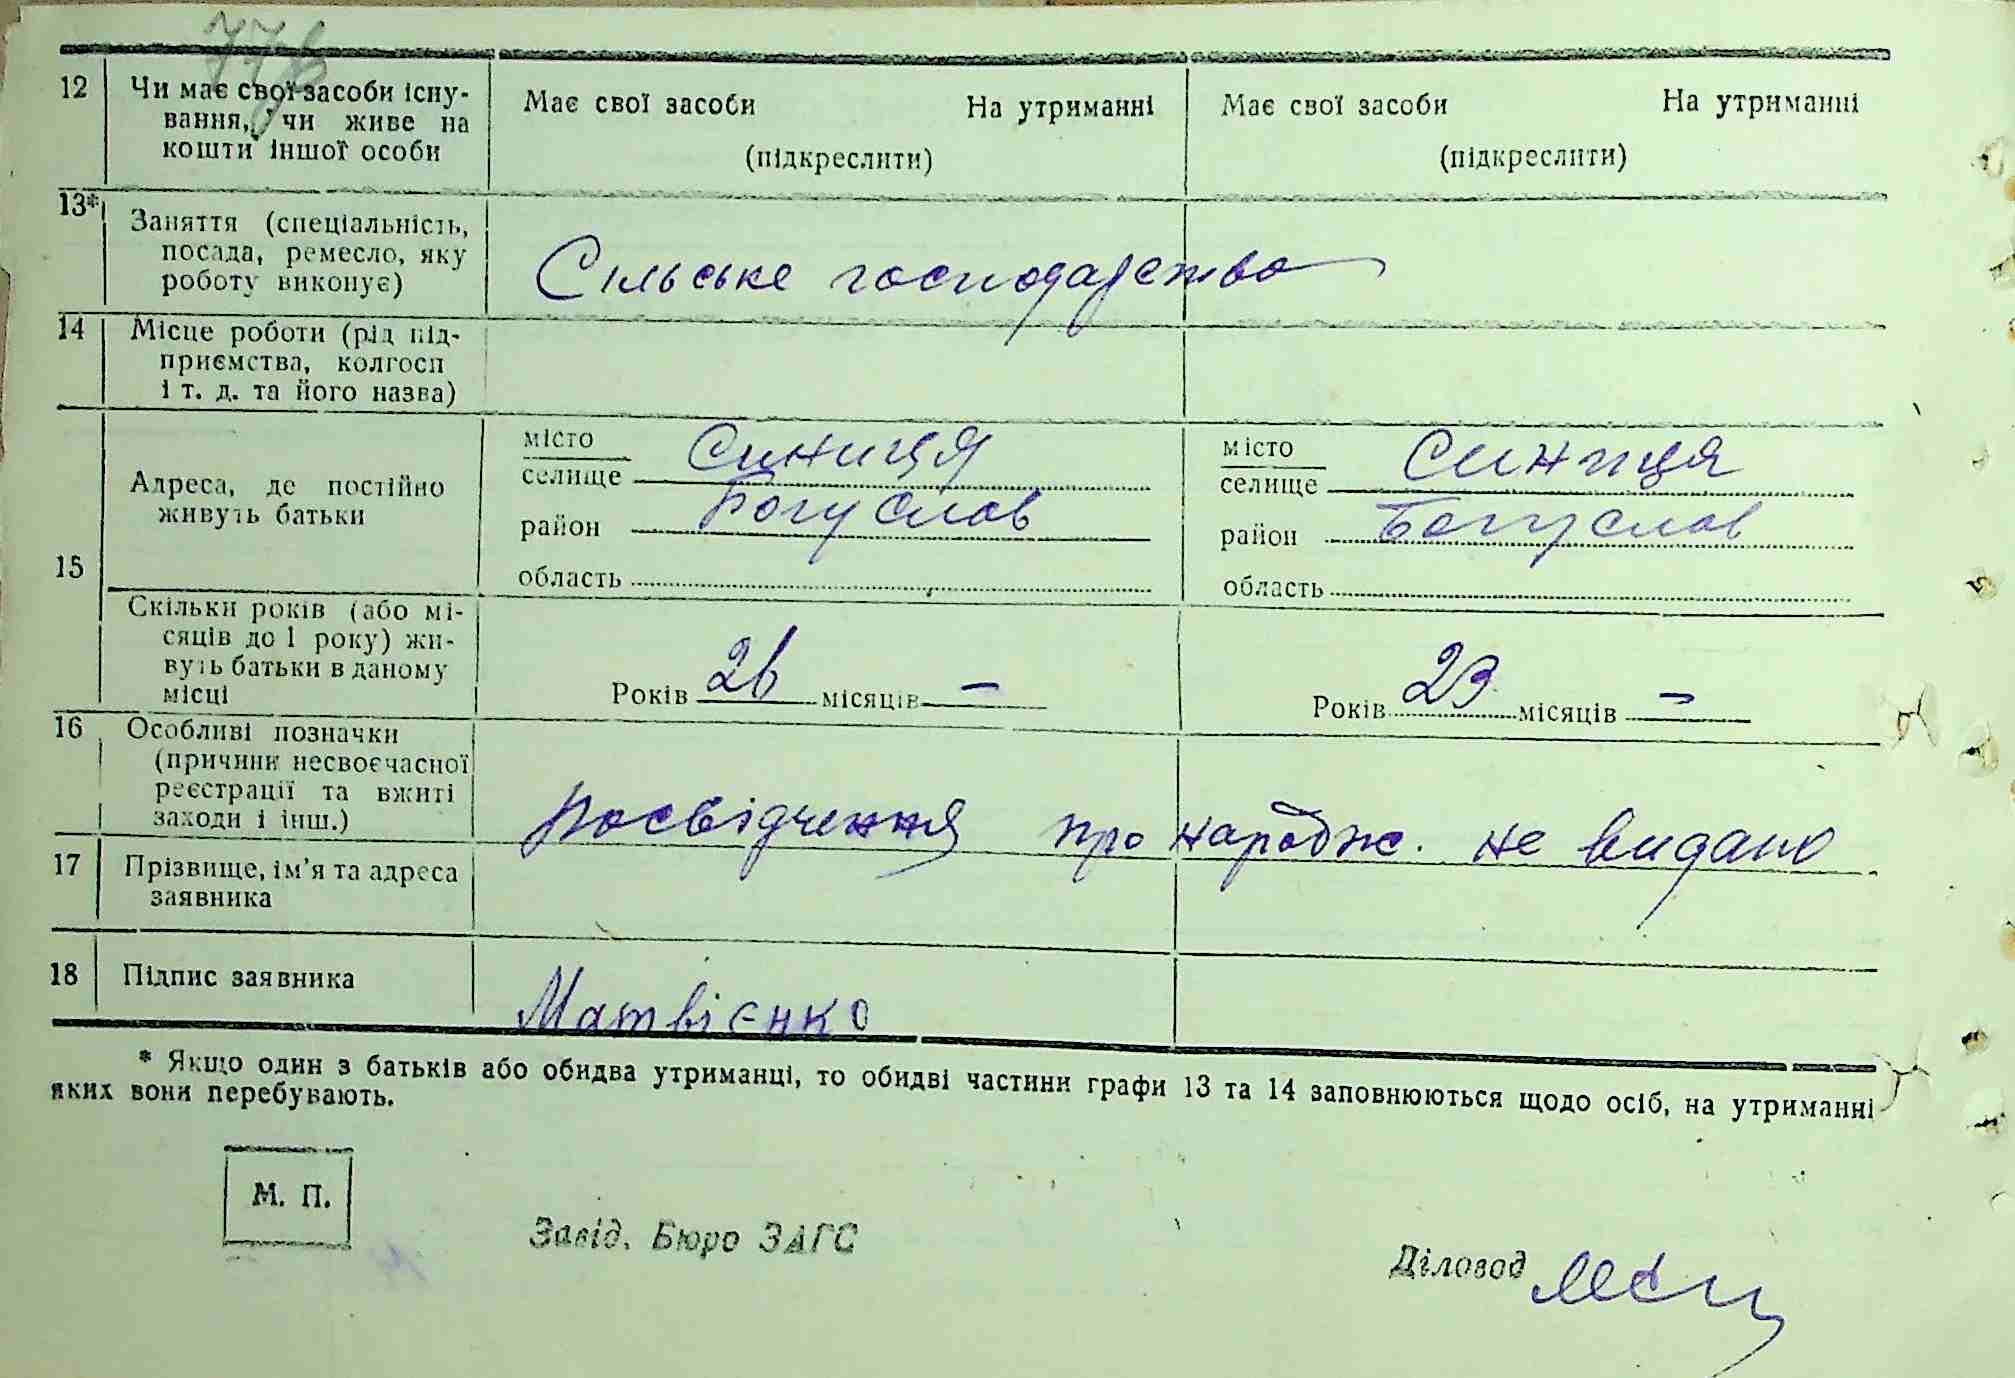 12 Чи має свої засоби існу-
вання, чи живе на
кошти іншої особи
Має свої засоби На утриманні
(підкреслити)
Має свої засоби На утриманні
(підкреслити)
13* Заняття (спеціальність,
посада, ремесло, яку
роботу виконує)
Сільське господарство
14 Місце роботи (рід під-
приємства, колгосп
і т. д. та його назва)
15 Адреса, де постійно
живуть батьки
місто
селище Синиця
район Богуслав
область
місто
селище Синиця
район Богуслав
область
Скільки років (або мі-
сяців до 1 року) жи-
вуть батьки в даному
місці
Років 26 місяців –
Років 23 місяців –
16 Особливі позначки
(причини несвоєчасної
реєстрації та вжиті
заходи і інш.)
Посвідчення про народж. не видано
17 Прізвище, ім'я та адреса
заявника
18 Підпис заявника
Матвієнко
* Якщо один з батьків або обидва утриманці, то обидві частини графи 13 та 14 заповнюються щодо осіб, на утриманні
яких вони перебувають.
М. П.
Завід. Бюро ЗАГС
Діловод